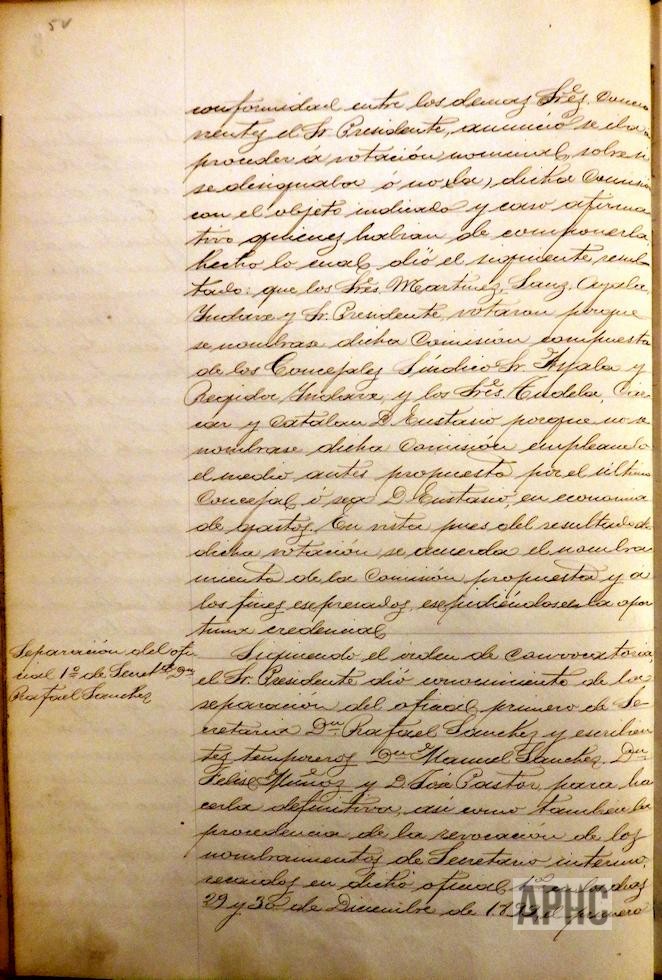 5v
conformidad entre los demas Sres. Concu
rrentes el Sr. Presidente, anunció se iba a
proceder á votación nominal, sobre si
se designaba ó no (la) dicha Comisión
con el objeto indicado y caso afirma
tivo quienes habian de componerla,
hecho lo cual dió el siguiente resul
tado: que los Sres. Martinez, Sanz, Ayala,
Yndave y Sr. Presidente, votaron porque
se nombrase dicha Comisión compuesta
de los Concejales Síndico Sr. Ayala y
Regidor Yndave, y los Sres. Tudela,
y Catalan D. Eustasio porque no se
nombrase dicha Comisión empleando
el medio antes propuesto por el último
Concejal ó sea D. Eustasio, en economia
de gastos. En vista pues del resultado de
dicha votación se acuerda el nombra
miento de la Comisión propuesta y a
los fines espresados, espidiéndosela opor
tuna credencial.
Separación del ofi
cial 1º de Secretª Dn
Rafael Sanchez
Siguiendo el orden de convocatoria,
el Sr. Presidente dió conocimiento de la
separación del oficial primero de Se
cretaria Dn Rafael Sanchez y escribien
tes temporeros Dn Manuel Sanchez, Dn
Felix Muñoz y D. José Pastor, para ha
cerla definitiva, asi como tambien la
procedencia de la revocación de los
nombramientos de Secretario interino,
recaidos en dicho oficial 1º en los dias
29 y 30 de Diciembre de 1893, el primero
APHC